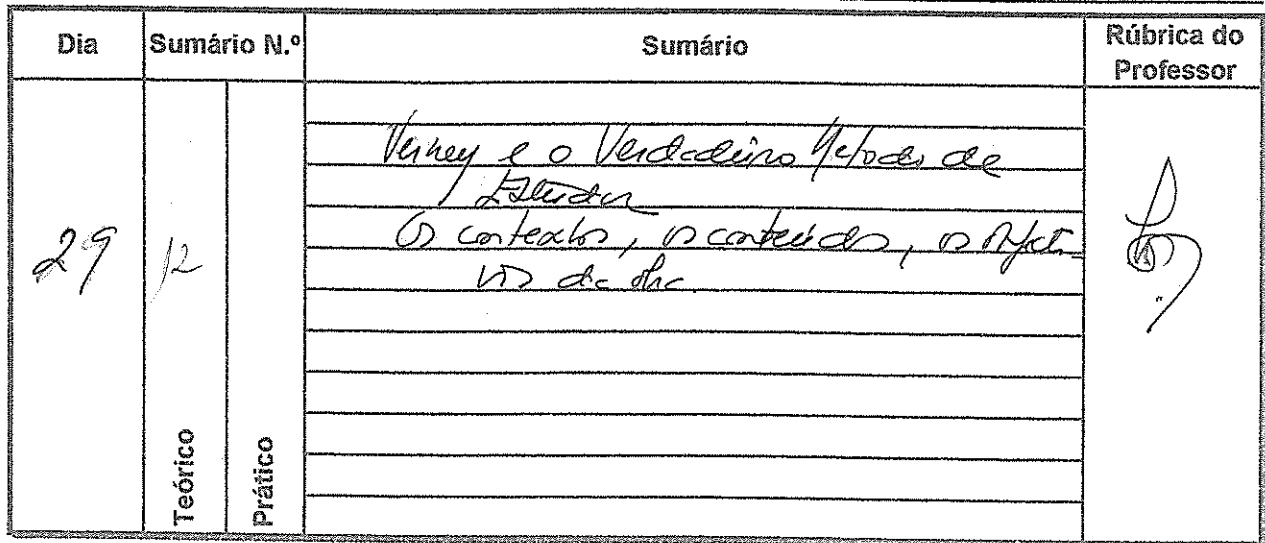 Dia Sumário N.º Sumário Rúbrica do Professor
Verney e o Verdadeiro Método de
Estudar
Os contextos, os conteúdos, os objecti-
vos da obra.
29 12
Teórico Prático